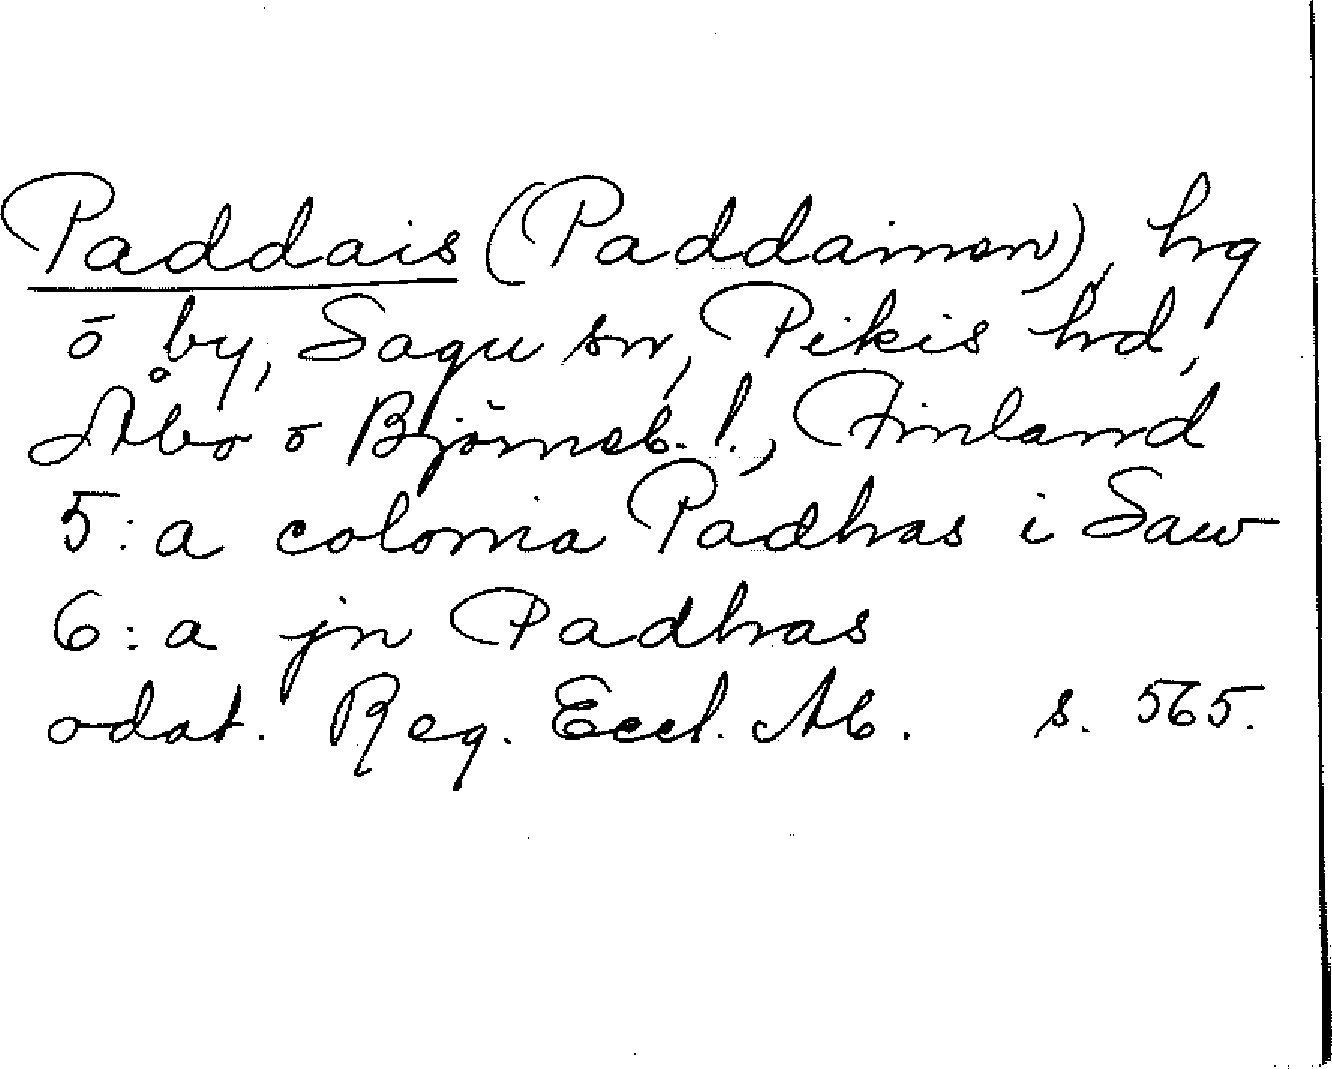 Paddais (Paddainen), hrg
ō by, Sagu sn, Pikis hd,
Åbo ō Björneb. l., Finland
5: a colonia Padhas i Saw
6: a jn Padhas
odat. Reg. Eccl. Ab. s. 565.